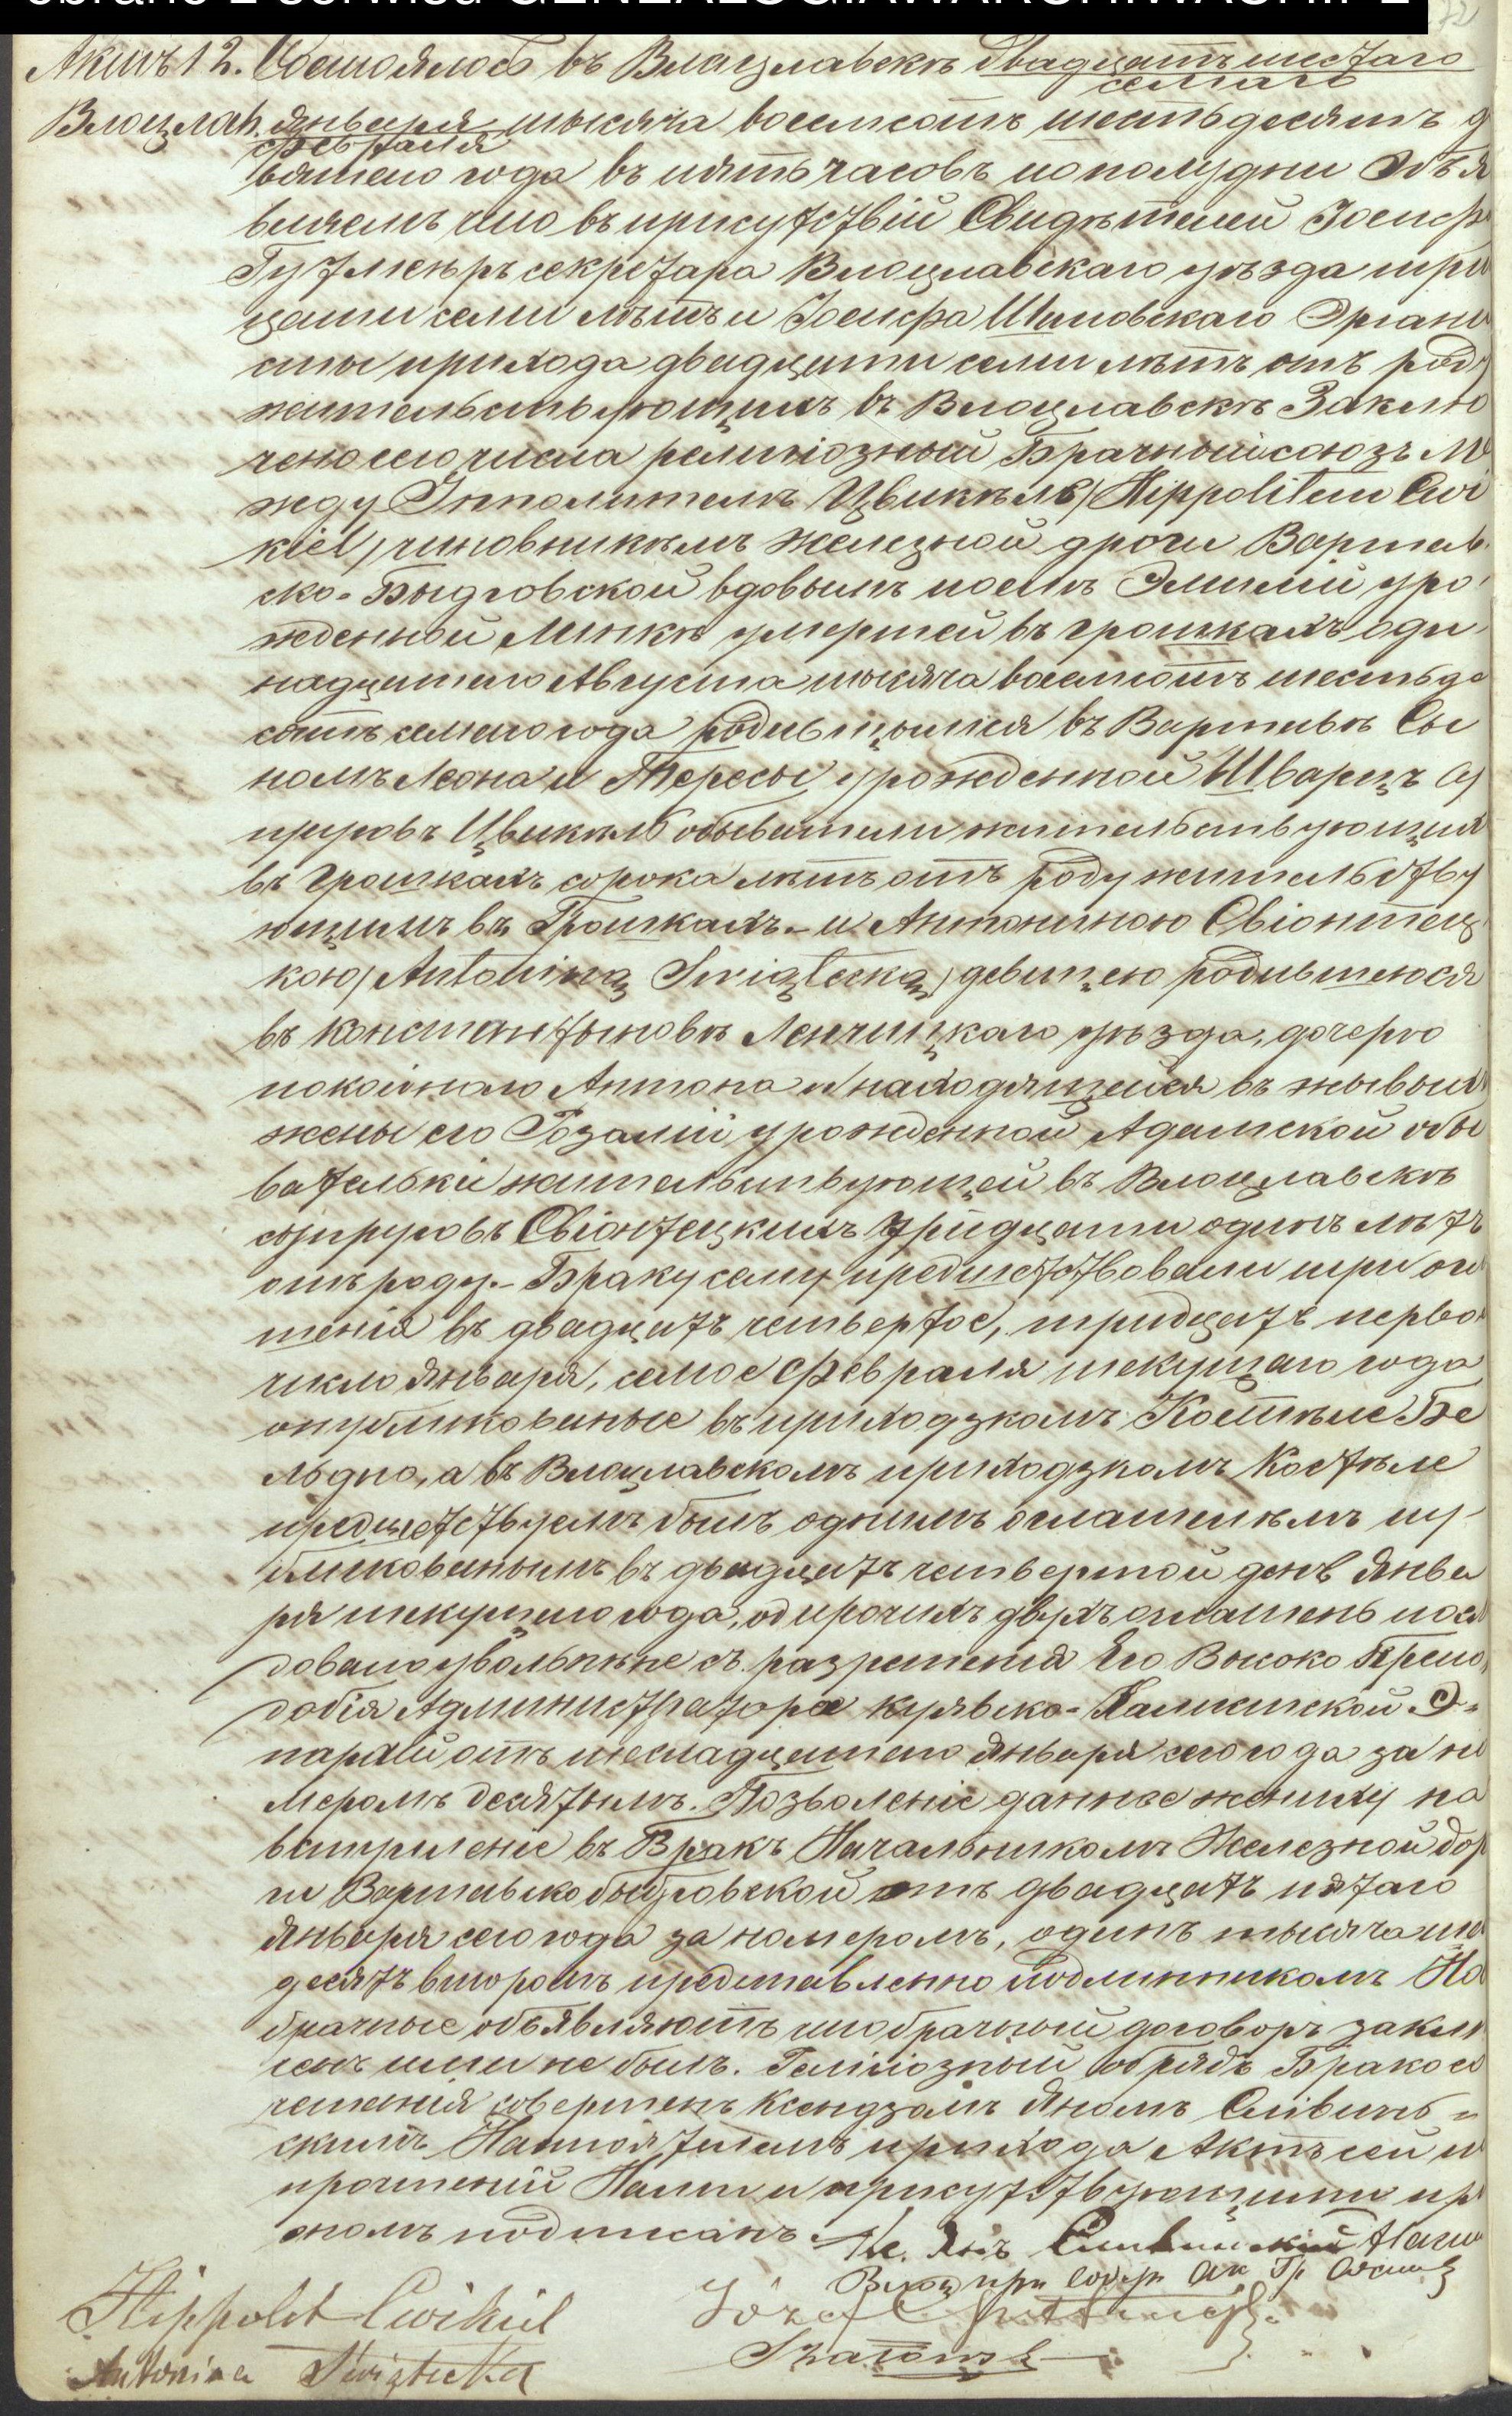 Актъ 12. Состоялось въ Влацлавскѣ двадцать шестаго
семаго
Влоцлав. Января тысяча восемсотъ шестьдесятъ д
Февраля
вятого года въ пять часовъ по полудни Объя
вляемъ что въ присутствіи Свидѣтелей Іосифа
секретара Влоцлавскаго уѣзда три
цати семи лѣтъ и Іосифа Шатовскаго Органи
сты прихода двадцати семи лѣтъ отъ роду
жительствующихъ въ Влоцлавскѣ Заклю
чено сего числа религіозный Брачный союзъ Ме
жду Ипполитемъ Цвикѣль (Hippolitem Cwi
kiel) чиновникѣмъ железной дроги Варшав
ско-Быдговской вдовымъ посли Эмиліи уро
жденной Минкѣ умершей въ Грошкахъ оди
надцатого Августа тысяча восемсотъ шестьде
сятъ семого года родившымся въ Варшавѣ Сы
номъ Леона и Тересы урожденной Шварцъ су
пруговъ Цвикѣль обыватели жительствующих
въ Грошкахъ сорока лѣтъ отъ роду жительству
ющимъ въ Грошкахъ.- и Антониною Свіонтец
кою (Antoniną Swiątecką) девицею родившеюся
въ Константыновѣ Ленчицкаго уѣзда, дочерю
покойного Антона и находящейся въ жывых
жены его Розаліи урожденной Адамской обы
вательки жительствующей въ Влоцлавскѣ
супруговъ Свіонтецкихъ тридцати одинъ лѣтъ
отъ роду.- Браку сему предшествовали три огла
шенія въ двадцать четвертое, тридцать первое
число Января, семое Февраля текущаго года
опубликованые въ приходзкомъ Костѣле Бе
льдно, а въ Влоцлавскомъ приходзкомъ Костѣле
предшествуемъ былъ однимъ оглашенѣмъ пу-
бликованымъ въ двадцать четвертой день Янва
ря текущего года, од прочихъ двухъ оглашень послѣ
довало увольненіе съ разрешенія Его Высоко Препо
добія Администратора Куявско-Калишской Э-
пархіи отъ шеснадцатого Января сего года за но
меромъ десятымъ. Позволеніе данное жениху на
вступленіе въ Бракъ Начальникомъ Железной дор
ги Варшавско быдговской отъ двадцать пятаго
Января сего года за номеромъ, одинъ тысяча ше
десятъ вторымъ представленно подлинникомъ Но
брачные объявляютъ что брачный договоръ заклю
ченъ ими не былъ. Религіозный обрядъ Бракосо
четанія совершенъ Ксендзомъ Яномъ Сливинь=
скимъ Настоятелемъ прихода Актъ сей по
прочтеніи Нами и присутствующими при
ономъ подписанъ. Кс. Янъ Сливинскій Насто
Влоц при содер Ак Гр Состоя
Hippolit Cwikiel Józef
Antonina Swiątecka Szatows